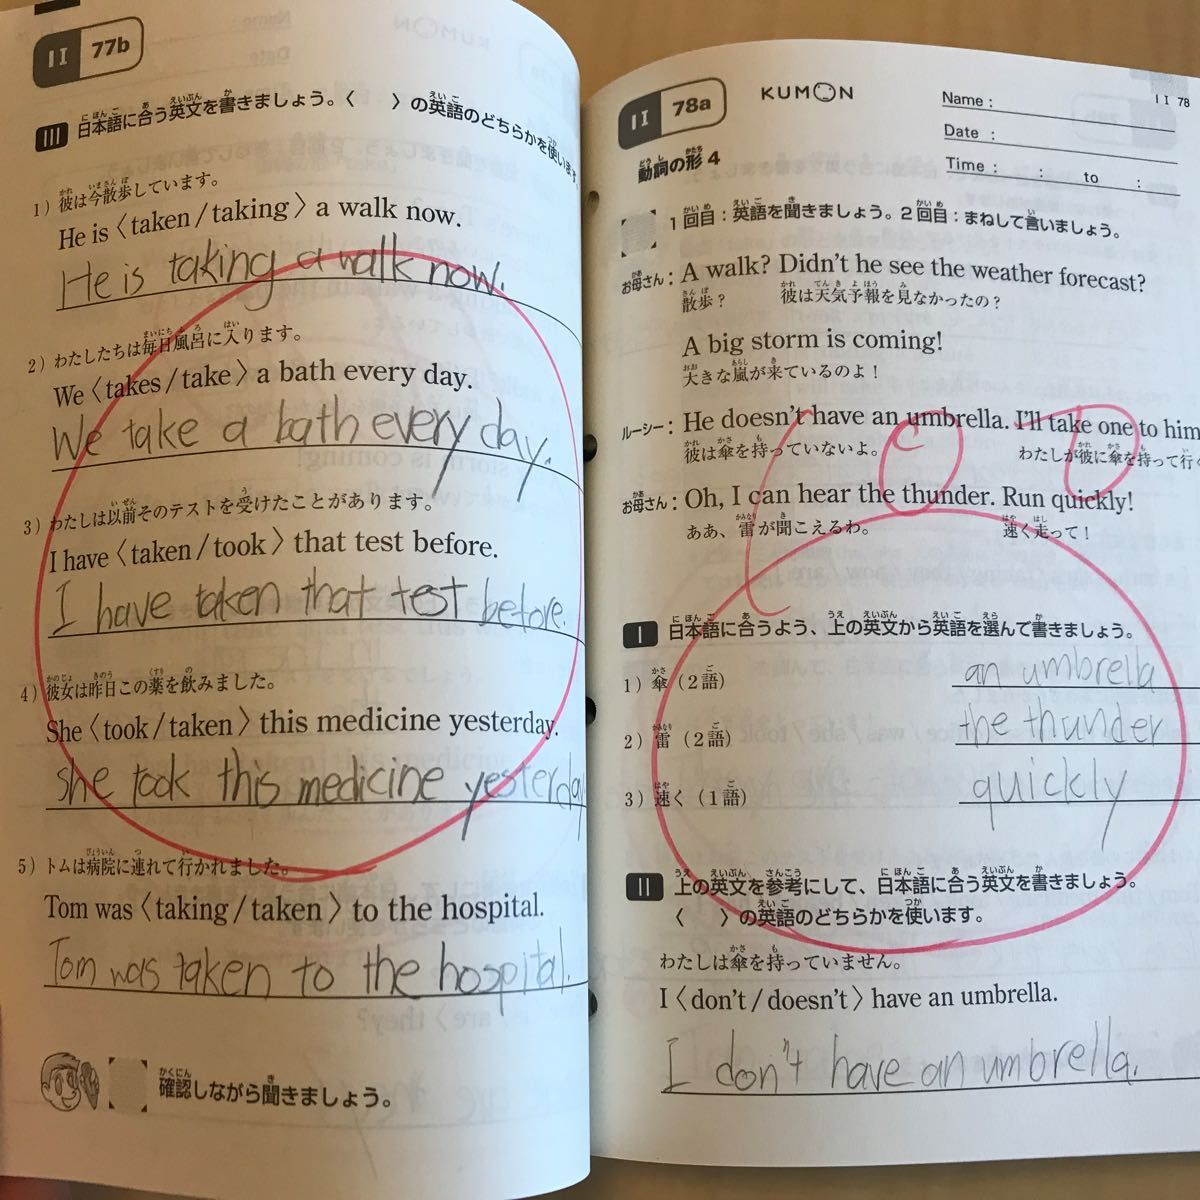 I I 77b
III 日本語に合う英文を書きましょう。〈 〉の英語のどちらかを使います。
1) 彼は今散歩しています。
He is 〈taken / taking〉 a walk now.
He is taking a walk now.
2) わたしたちは毎日風呂に入ります。
We 〈takes / take〉 a bath every day.
We take a bath every day.
3) わたしは以前そのテストを受けたことがあります。
I have 〈taken / took〉 that test before.
I have taken that test before.
4) 彼女は昨日この薬を飲みました。
She 〈took / taken〉 this medicine yesterday.
she took this medicine yesterday
5) トムは病院に連れて行かれました。
Tom was 〈taking / taken〉 to the hospital.
Tom was taken to the hospital.
確認しながら聞きましょう。
I I 78a
KUMON
Name :
I I 78
Date :
Time : : to :
動詞の形 4
1回目：英語を聞きましょう。2回目：まねして言いましょう。
お母さん： A walk? Didn't he see the weather forecast?
散歩？ 彼は天気予報を見なかったの？
A big storm is coming!
大きな嵐が来ているのよ！
ルーシー： He doesn't have an umbrella. I'll take one to him
彼は傘を持っていないよ。 わたしが彼に傘を持って行く
お母さん： Oh, I can hear the thunder. Run quickly!
ああ、雷が聞こえるわ。 速く走って！
100
I 日本語に合うよう、上の英文から英語を選んで書きましょう。
1) 傘（2語） an umbrella
2) 雷（2語） the thunder
3) 速く（1語） quickly
II 上の英文を参考にして、日本語に合う英文を書きましょう。
〈 〉の英語のどちらかを使います。
わたしは傘を持っていません。
I 〈don't / doesn't〉 have an umbrella.
I don't have an umbrella.